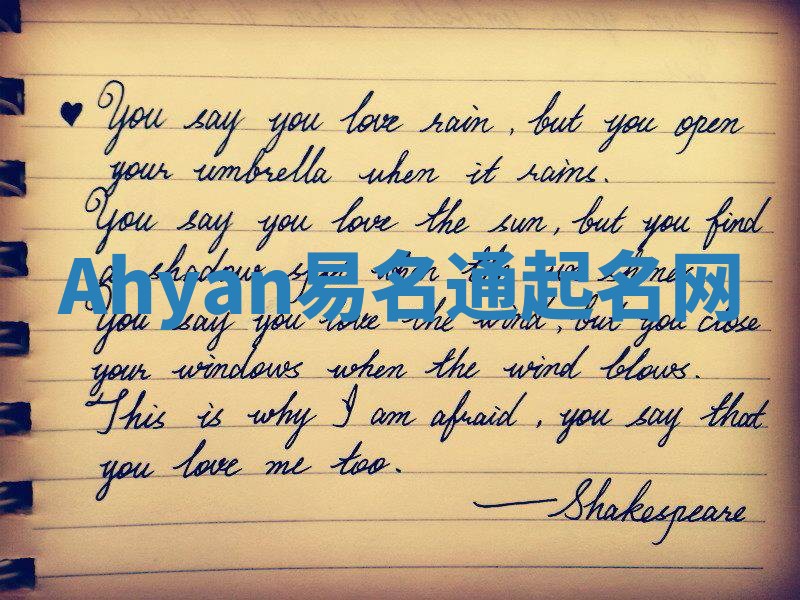 You say you love rain, but you open
your umbrella when it rains.
You say you love the sun, but you find
a shadow spot when the sun shines.
Ahyan易名通起名网
You say you love the wind, but you close
your windows when the wind blows.
This is why I am afraid, you say that
you love me too.
—Shakespeare